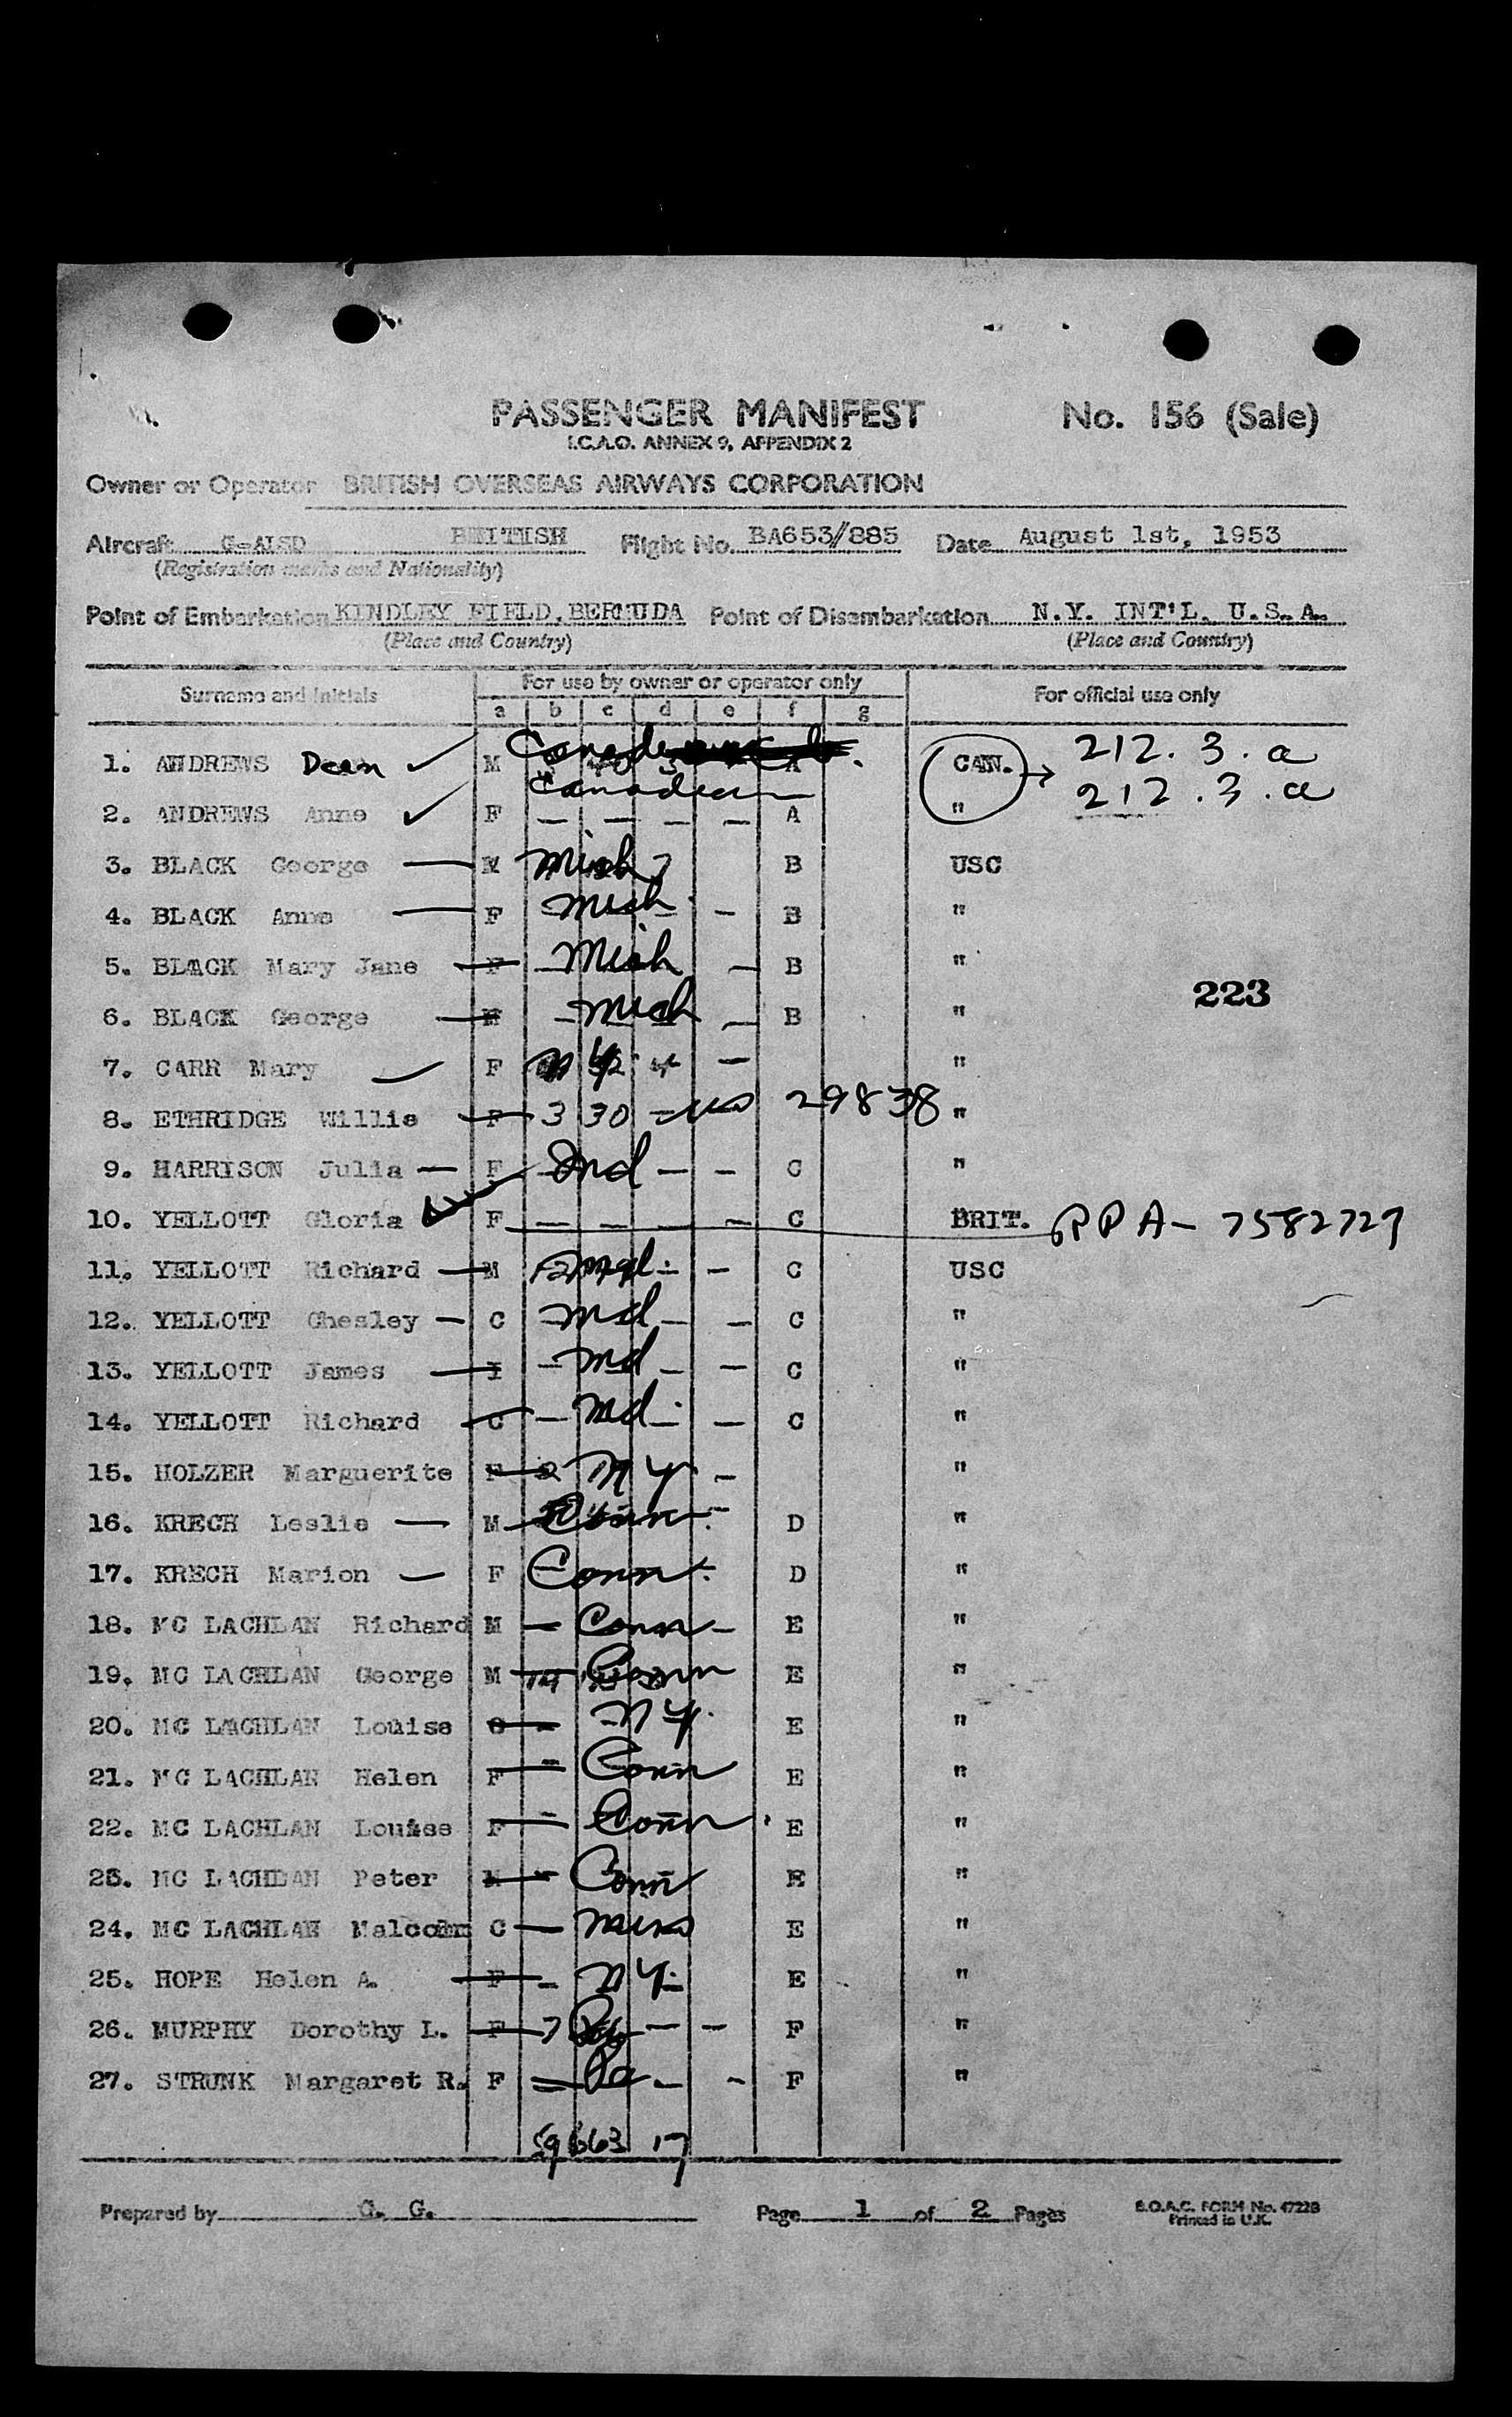 PASSENGER MANIFEST No. 156 (Sale)
I.C.A.O. ANNEX 9, APPENDIX 2
Owner or Operator BRITISH OVERSEAS AIRWAYS CORPORATION
Aircraft G-ALSD BRITISH Flight No. BA653//885 Date August 1st, 1953
(Registration marks and Nationality)
Point of Embarkation KINDLEY FIELD, BERMUDA Point of Disembarkation N.Y. INT'L. U.S.A.
(Place and Country) (Place and Country)
Surname and Initials For use by owner or operator only For official use only
a b c d e f g
1. ANDREWS Dean M A CAN. 212.3.a
Canadian
2. ANDREWS Anne F — — — — A " 212.3.a
3. BLACK George M Mich B USC
4. BLACK Anne F Mich - B "
5. BLACK Mary Jane F Mich — B "
223
6. BLACK George M Mich — B "
7. CARR Mary F N Y — "
8. ETHRIDGE Willie F 3 30 29838 "
9. HARRISON Julia — F Ind — - C "
10. YELLOTT Gloria F — — — — C BRIT. RPA- 7582727
11. YELLOTT Richard — M Md - C USC
12. YELLOTT Chesley — C Md — — C "
13. YELLOTT James — I - Md — — C "
14. YELLOTT Richard C — Md — — C "
15. HOLZER Marguerite F 2 N Y. - "
16. KRECH Leslie — M Conn D "
17. KRECH Marion — F Conn. D "
18. MC LACHLAN Richard M — Conn - E "
19. MC LACHLAN George M Conn E "
20. MC LACHLAN Louise C - N Y. E "
21. MC LACHLAN Helen F - Conn E "
22. MC LACHLAN Louise F - Conn E "
23. MC LACHLAN Peter M - Conn E "
24. MC LACHLAN Malcolm C — E "
25. HOPE Helen A. F - N Y. E "
26. MURPHY Dorothy L. F 7 — - F "
27. STRUNK Margaret R. F Pa - - F "
17
Prepared by C. G. Page 1 of 2 Pages B.O.A.C. FORM No. 4722B
Printed in U.K.